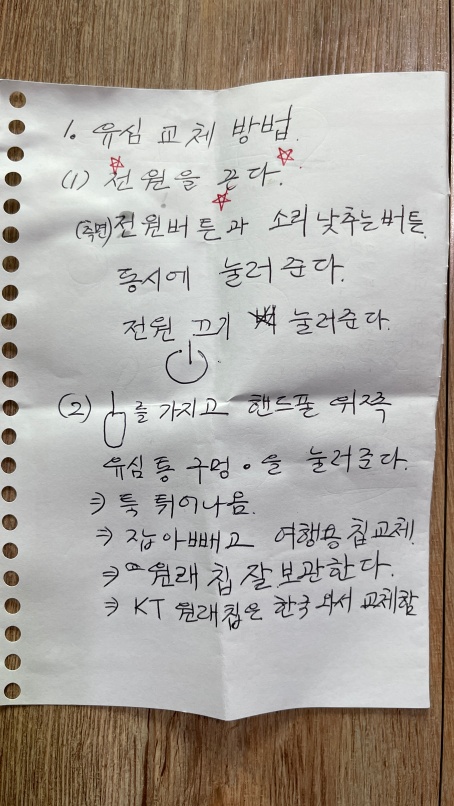 1. 유심 교체 방법.
(1) 전원을 끈다.
(측면)전원버튼과 소리 낮추는버튼
동시에 눌러준다.
전원 끄기 눌러준다.
(2) 를 가지고 핸드폴 위쪽
유심통 구멍 을 눌러준다.
⇒ 툭 튀어나옴.
⇒ 잡아빼고 여행용칩교체.
⇒ 원래 칩 잘보관한다.
⇒ KT 원래칩은 한국 와서 교체함